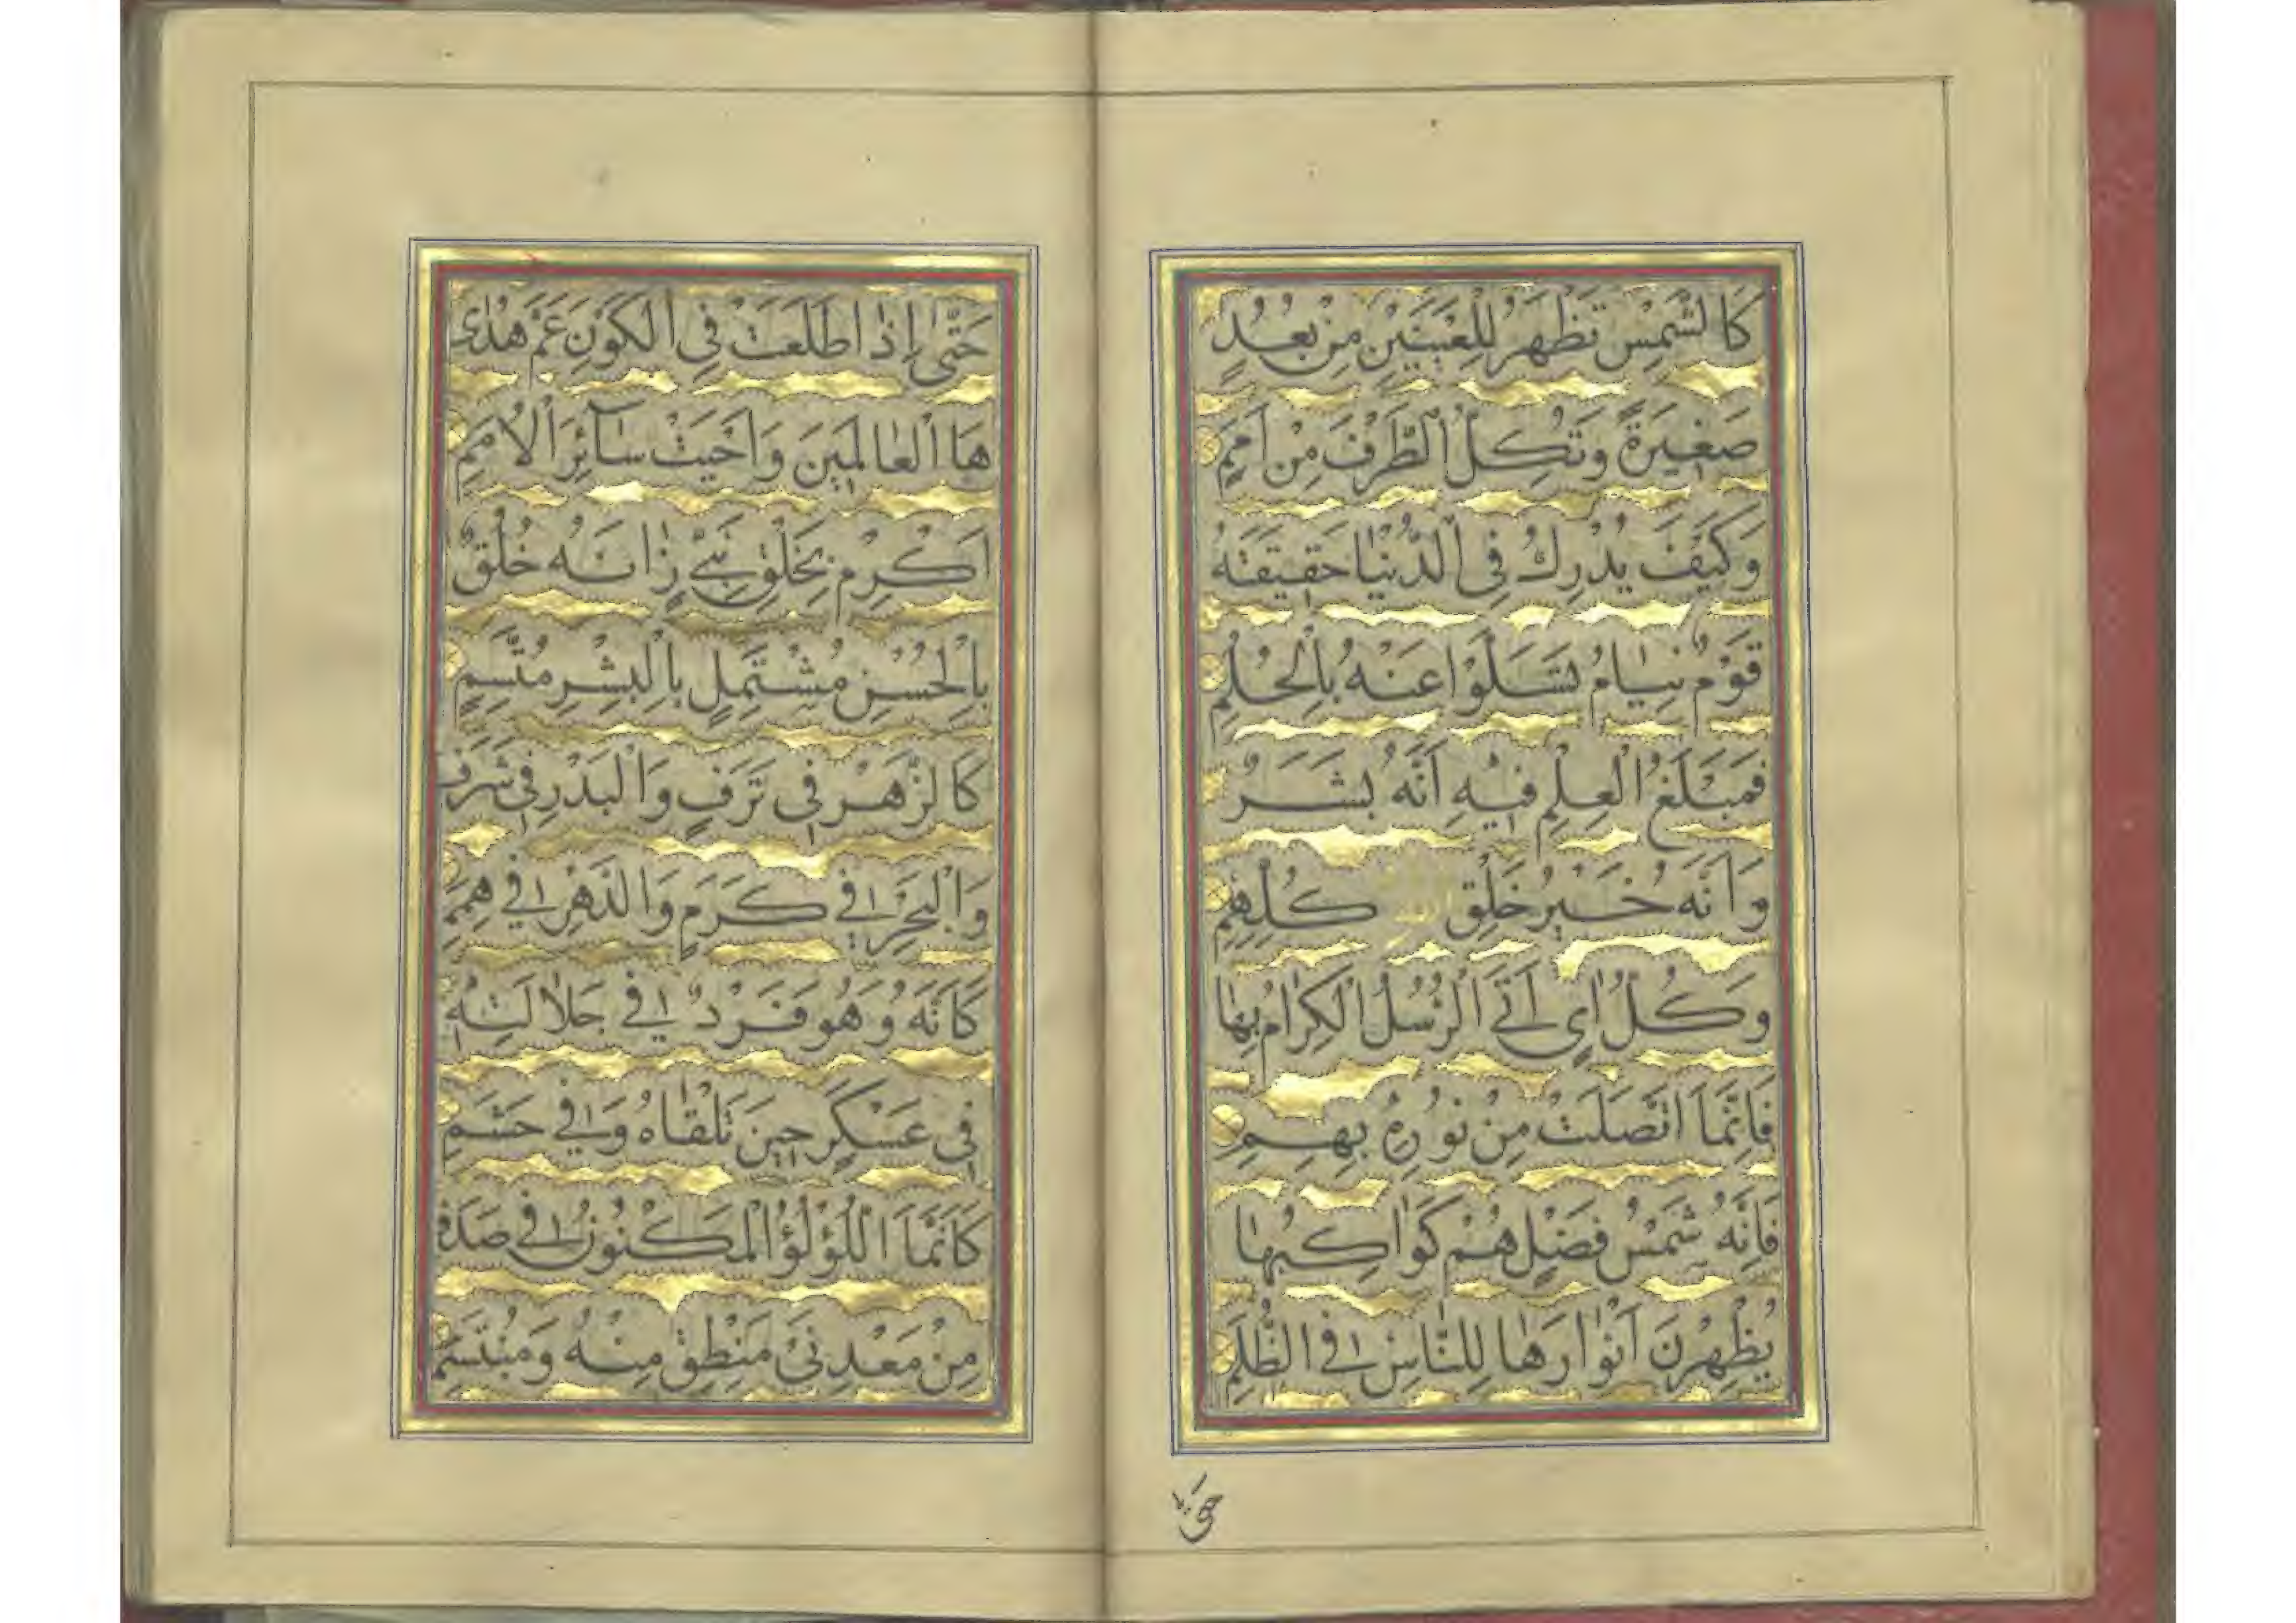 كَالشَّمْسِ تَظْهَرُ لِلْعَيْنَيْنِ مِنْ بُعُدٍ
صَغِيرَةً وَتَكِلُّ الطَّرْفَ مِنْ اَمَمٍ
وَكَيْفَ يُدْرِكُ فِي الدُّنْيَا حَقِيقَتَهُ
قَوْمٌ نِيَامٌ تَسَلَّوْا عَنْهُ بِالْحُلُمِ
فَمَبْلَغُ الْعِلْمِ فِيهِ اَنَّهُ بَشَرٌ
وَاَنَّهُ خَيْرُ خَلْقِ اللهِ كُلِّهِمِ
وَكُلُّ اٰيٍ اَتَى الرُّسُلُ الْكِرَامُ بِهَا
فَاِنَّمَا اتَّصَلَتْ مِنْ نُورِهِ بِهِمِ
فَاِنَّهُ شَمْسُ فَضْلٍ هُمْ كَوَاكِبُهَا
يُظْهِرْنَ اَنْوَارَهَا لِلنَّاسِ فِي الظُّلَمِ
حتى
حَتّٰى اِذَا طَلَعَتْ فِي الْكَوْنِ عَمَّ هُدَى
هَا الْعَالَمِينَ وَاَحْيَتْ سَآئِرَ الْاُمَمِ
اَكْرِمْ بِخَلْقِ نَبِيٍّ زَانَهُ خُلُقٌ
بِالْحُسْنِ مُشْتَمِلٍ بِالْبِشْرِ مُتَّسِمِ
كَالزَّهْرِ فِي تَرَفٍ وَالْبَدْرِ فِي شَرَفٍ
وَالْبَحْرِ فِي كَرَمٍ وَالدَّهْرِ فِي هِمَمِ
كَاَنَّهُ وَهُوَ فَرْدٌ فِي جَلَالَتِهِ
فِي عَسْكَرٍ حِينَ تَلْقَاهُ وَفِي حَشَمِ
كَاَنَّمَا اللُّؤْلُؤُ الْمَكْنُونُ فِي صَدَفٍ
مِنْ مَعْدِنَيْ مَنْطِقٍ مِنْهُ وَمُبْتَسَمِ